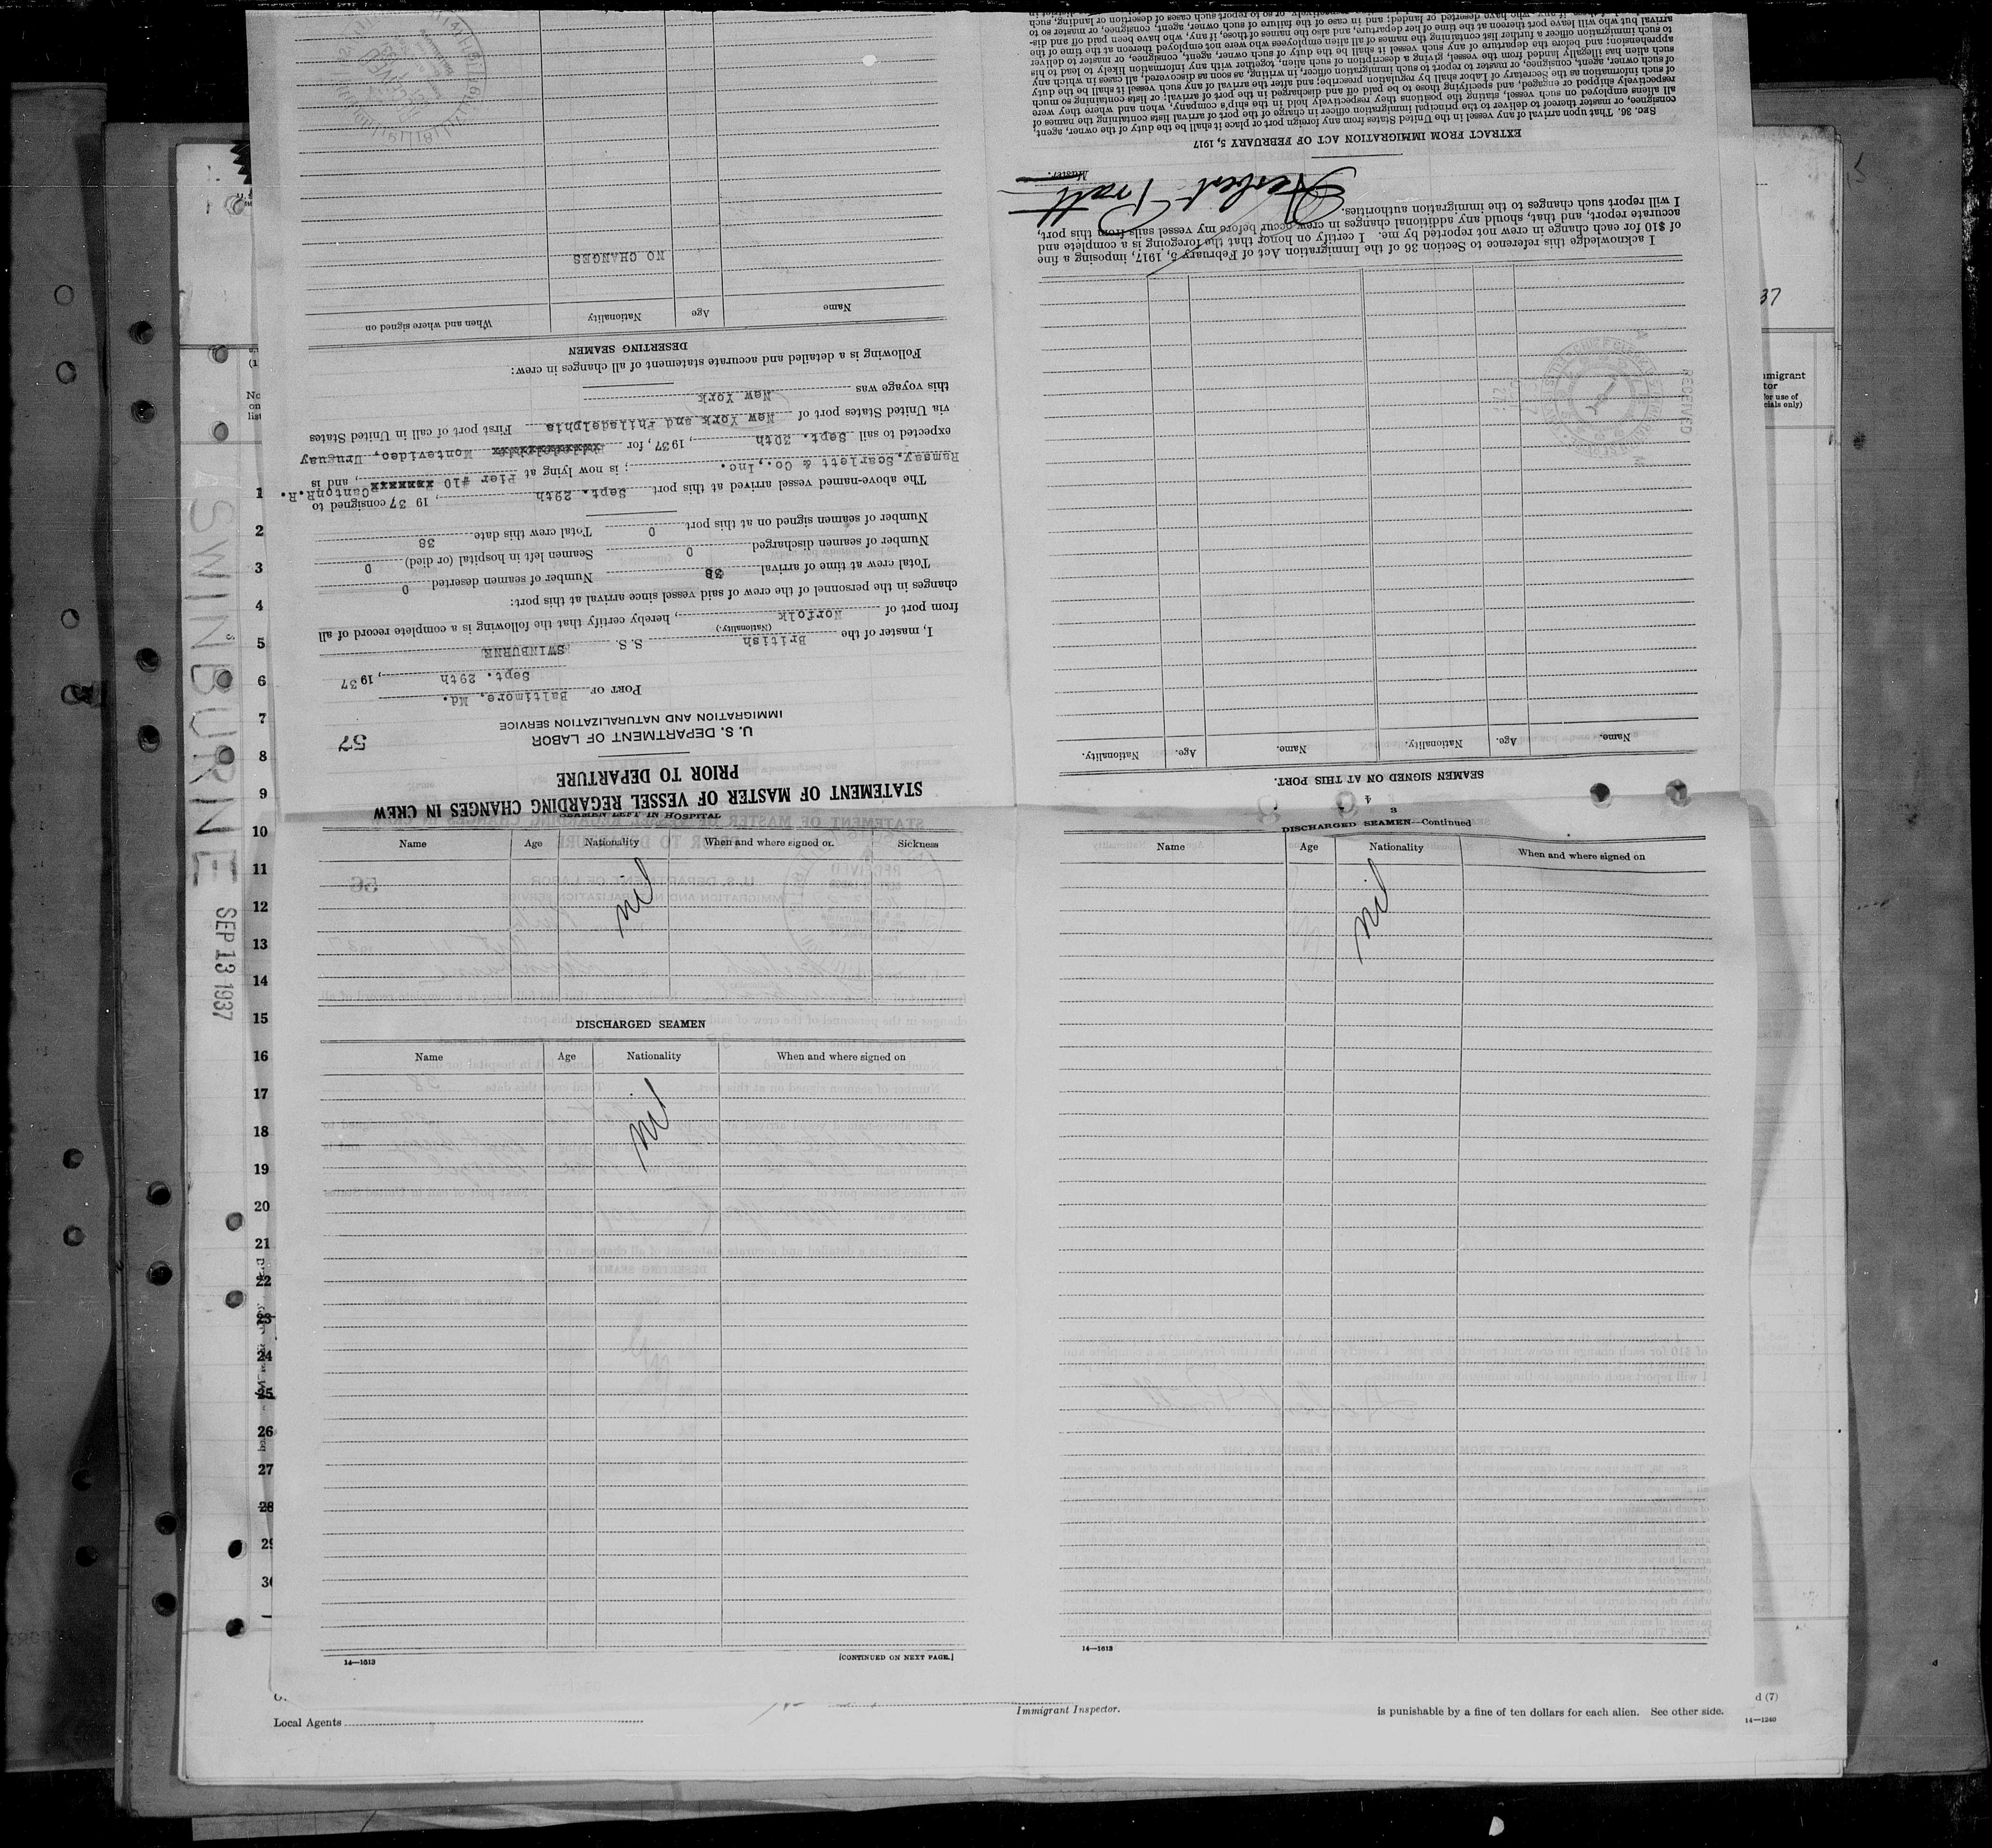 STATEMENT OF MASTER OF VESSEL REGARDING CHANGES IN CREW
PRIOR TO DEPARTURE
U. S. DEPARTMENT OF LABOR
IMMIGRATION AND NATURALIZATION SERVICE
57
PORT OF Baltimore, Md.
Sept. 29th, 1937
I, master of the British S.S. SWINBURNE
(Nationality.)
from port of Norfolk, hereby certify that the following is a complete record of all
changes in the personnel of the crew of said vessel since arrival at this port:
Total crew at time of arrival 38 Number of seamen deserted 0
Number of seamen discharged 0 Seamen left in hospital (or died) 0
Number of seamen signed on at this port 0 Total crew this date 38
The above-named vessel arrived at this port Sept. 29th, 1937 consigned to
Ramsay, Scarlett & Co., Inc.; is now lying at Pier #10 xxxxxxx Canton R.R., and is
expected to sail Sept. 30th, 1937, for Montevideo, Uruguay
via United States port of New York and Philadelphia First port of call in United States
this voyage was New York
Following is a detailed and accurate statement of all changes in crew:
DESERTING SEAMEN
Name Age Nationality When and where signed on
NO CHANGES
SEAMEN SIGNED ON AT THIS PORT.
Name. Age. Nationality. Name. Age. Nationality.
RECEIVED
I acknowledge this reference to Section 36 of the Immigration Act of February 5, 1917, imposing a fine
of $10 for each change in crew not reported by me. I certify on honor that the foregoing is a complete and
accurate report, and that, should any additional changes in crew occur before my vessel sails from this port,
I will report such changes to the immigration authorities.
Herbert Pratt
Master.
EXTRACT FROM IMMIGRATION ACT OF FEBRUARY 5, 1917
SEC. 36. That upon arrival of any vessel in the United States from any foreign port or place it shall be the duty of the owner, agent,
consignee, or master thereof to deliver to the principal immigration officer in charge of the port of arrival lists containing the names of
all aliens employed on such vessel, stating the positions they respectively hold in the ship's company, when and where they were
respectively shipped or engaged, and specifying those to be paid off and discharged in the port of arrival; or lists containing so much
of such information as the Secretary of Labor shall by regulation prescribe; and after the arrival of any such vessel it shall be the duty
of such owner, agent, consignee, or master to report to such immigration officer, in writing, as soon as discovered, all cases in which any
such alien has illegally landed from the vessel, giving a description of such alien, together with any information likely to lead to his
apprehension; and before the departure of any such vessel it shall be the duty of such owner, agent, consignee, or master to deliver
to such immigration officer a further list containing the names of all alien employees who were not employed thereon at the time of the
arrival but who will leave port thereon at the time of her departure, and also the names of those, if any, who have been paid off and dis-
SEAMEN LEFT IN HOSPITAL
Name Age Nationality When and where signed on Sickness
nil
DISCHARGED SEAMEN
Name Age Nationality When and where signed on
nil
14—1613
[CONTINUED ON NEXT PAGE.]
DISCHARGED SEAMEN—Continued
Name Age Nationality When and where signed on
nil
14—1613
SWINBURNE
SEP 13 1937
1
2
3
4
5
6
7
8
9
10
11
12
13
14
15
16
17
18
19
20
21
22
23
24
25
26
27
28
29
30
Local Agents
Immigrant Inspector.
is punishable by a fine of ten dollars for each alien. See other side.
14—1240